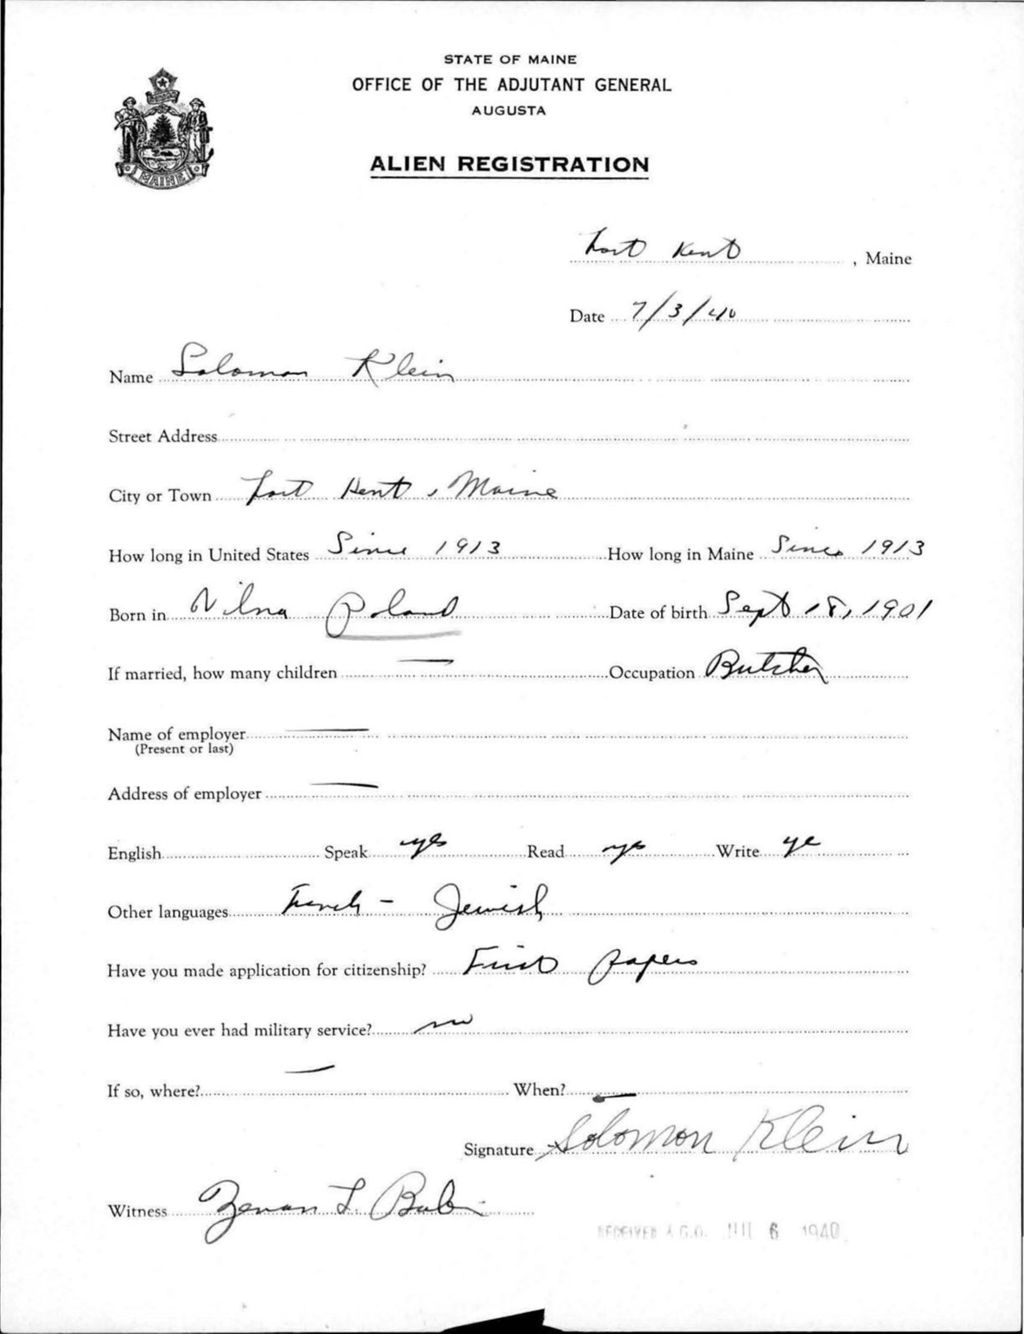 STATE OF MAINE
OFFICE OF THE ADJUTANT GENERAL
AUGUSTA
ALIEN REGISTRATION
MAINE
Fort Kent, Maine
Date 7/3/40
Name Solomon Klein
Street Address
City or Town Fort Kent, Maine
How long in United States Since 1913 How long in Maine Since 1913
Born in Vilna Poland Date of birth Sept 18, 1901
If married, how many children — Occupation Butcher
Name of employer —
(Present or last)
Address of employer —
English Speak yes Read yes Write ye
Other languages French - Jewish
Have you made application for citizenship? First papers
Have you ever had military service? no
If so, where? — When? —
Signature Solomon Klein
Witness L.
RECEIVED A.G.O. JUL 6 1940